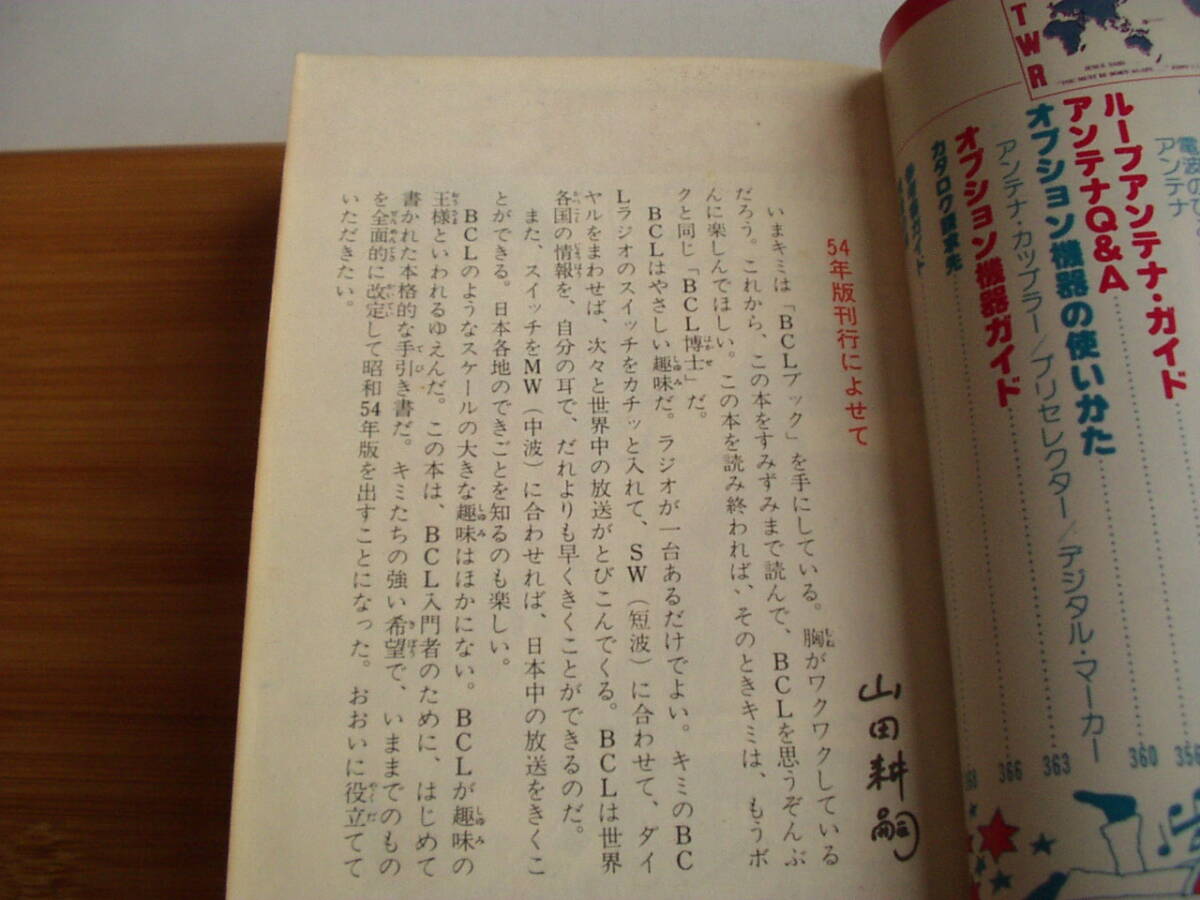 電波のひ
アンテナ
356
ループアンテナ・ガイド
360
アンテナQ&A
オプション機器の使いかた
363
アンテナ・カップラー/プリセレクター/デジタル・マーカー
オプション機器ガイド
366
カタログ請求先
TWR
54年版刊行によせて
山田耕嗣
いまキミは「BCLブック」を手にしている。胸がワクワクしている
だろう。これから、この本をすみずみまで読んで、BCLを思うぞんぶ
んに楽しんでほしい。この本を読み終われば、そのときキミは、もうボ
クと同じ「BCL博士」だ。
BCLはやさしい趣味だ。ラジオが一台あるだけでよい。キミのBC
Lラジオのスイッチをカチッと入れて、SW(短波)に合わせて、ダイ
ヤルをまわせば、次々と世界中の放送がとびこんでくる。BCLは世界
各国の情報を、自分の耳で、だれよりも早くきくことができるのだ。
また、スイッチをMW(中波)に合わせれば、日本中の放送をきくこ
とができる。日本各地のできごとを知るのも楽しい。
BCLのようなスケールの大きな趣味はほかにない。BCLが趣味の
王様といわれるゆえんだ。この本は、BCL入門者のために、はじめて
書かれた本格的な手引き書だ。キミたちの強い希望で、いままでのもの
を全面的に改定して昭和54年版を出すことになった。おおいに役立てて
いただきたい。